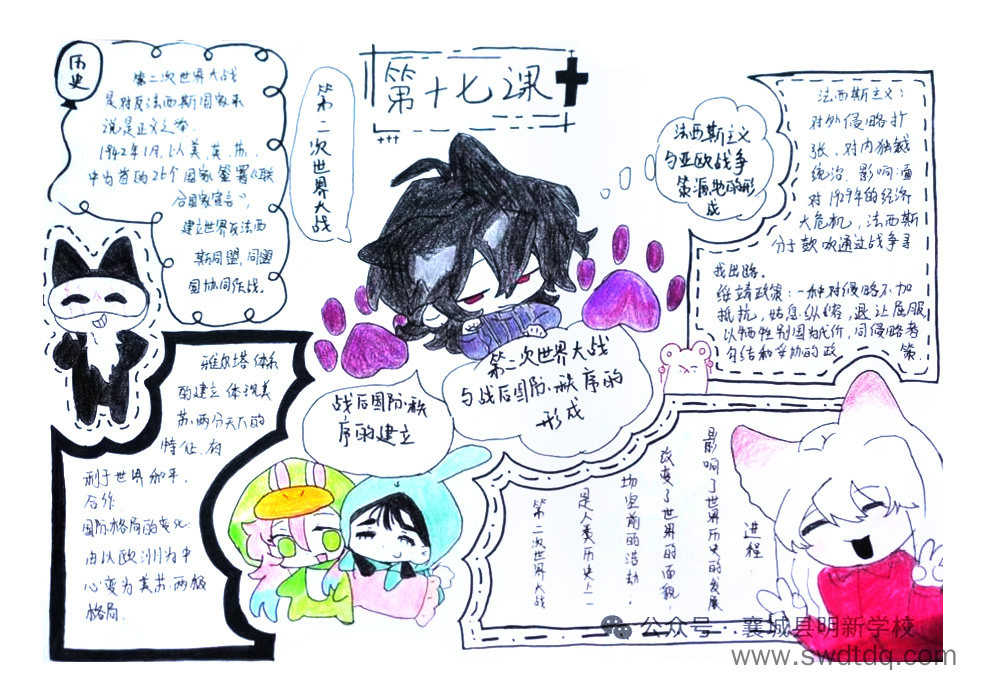 历史
第二次世界大战
是对反法西斯国家来
说是正义之举.
1942年1月,以美、英、苏、
中为首的26个国家签署《联
合国家宣言》,
建立世界反法西
斯同盟,同盟
国协同作战.
第二次世界大战
第十七课
法西斯主义
与亚欧战争
策源地的形
成
法西斯主义:
对外侵略扩
张、对内独裁
统治.影响:面
对1929年的经济
大危机,法西斯
分子鼓吹通过战争寻
找出路.
绥靖政策:一种对侵略不加
抵抗,姑息纵容,退让屈服
以牺牲别国为代价,同侵略者
勾结和妥协的政策.
第二次世界大战
与战后国际秩序的
形成
战后国际秩
序的建立
雅尔塔体系
的建立体现美
苏两分天下的
特征.有
利于世界和平,
合作
国际格局的变化:
由以欧洲为中
心变为美苏两极
格局.
第二次世界大战
是人类历史上一
场空前的浩劫,
改变了世界的面貌,
影响了世界历史的发展
进程.
公众号·襄城县明新学校
www.swdtdq.com